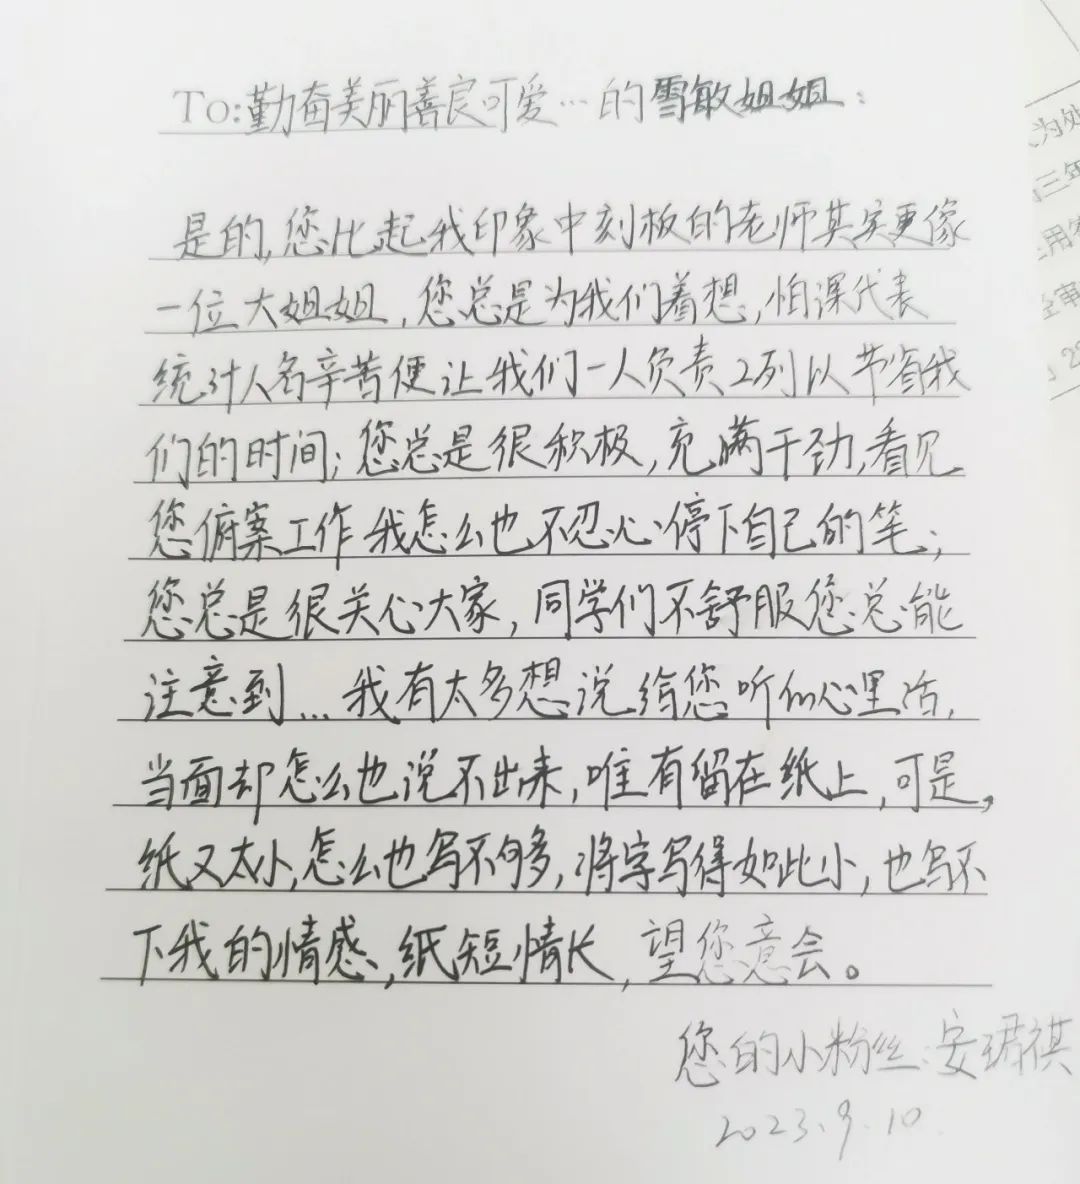 To:勤奋美丽善良可爱…的雪敏姐姐:
是的,您比起我印象中刻板的老师其实更像
一位大姐姐,您总是为我们着想,怕课代表
统计人名辛苦便让我们一人负责2列以节省我
们的时间;您总是很积极,充满干劲,看见
您俯案工作我怎么也不忍心停下自己的笔;
您总是很关心大家,同学们不舒服您总能
注意到...我有太多想说给您听的心里话,
当面却怎么也说不出来,唯有留在纸上,可是,
纸又太小,怎么也写不够多,将字写得如此小,也写不
下我的情感,纸短情长,望您意会。
您的小粉丝:安珺祺
2023.9.10
为处
三年
用
全审
2